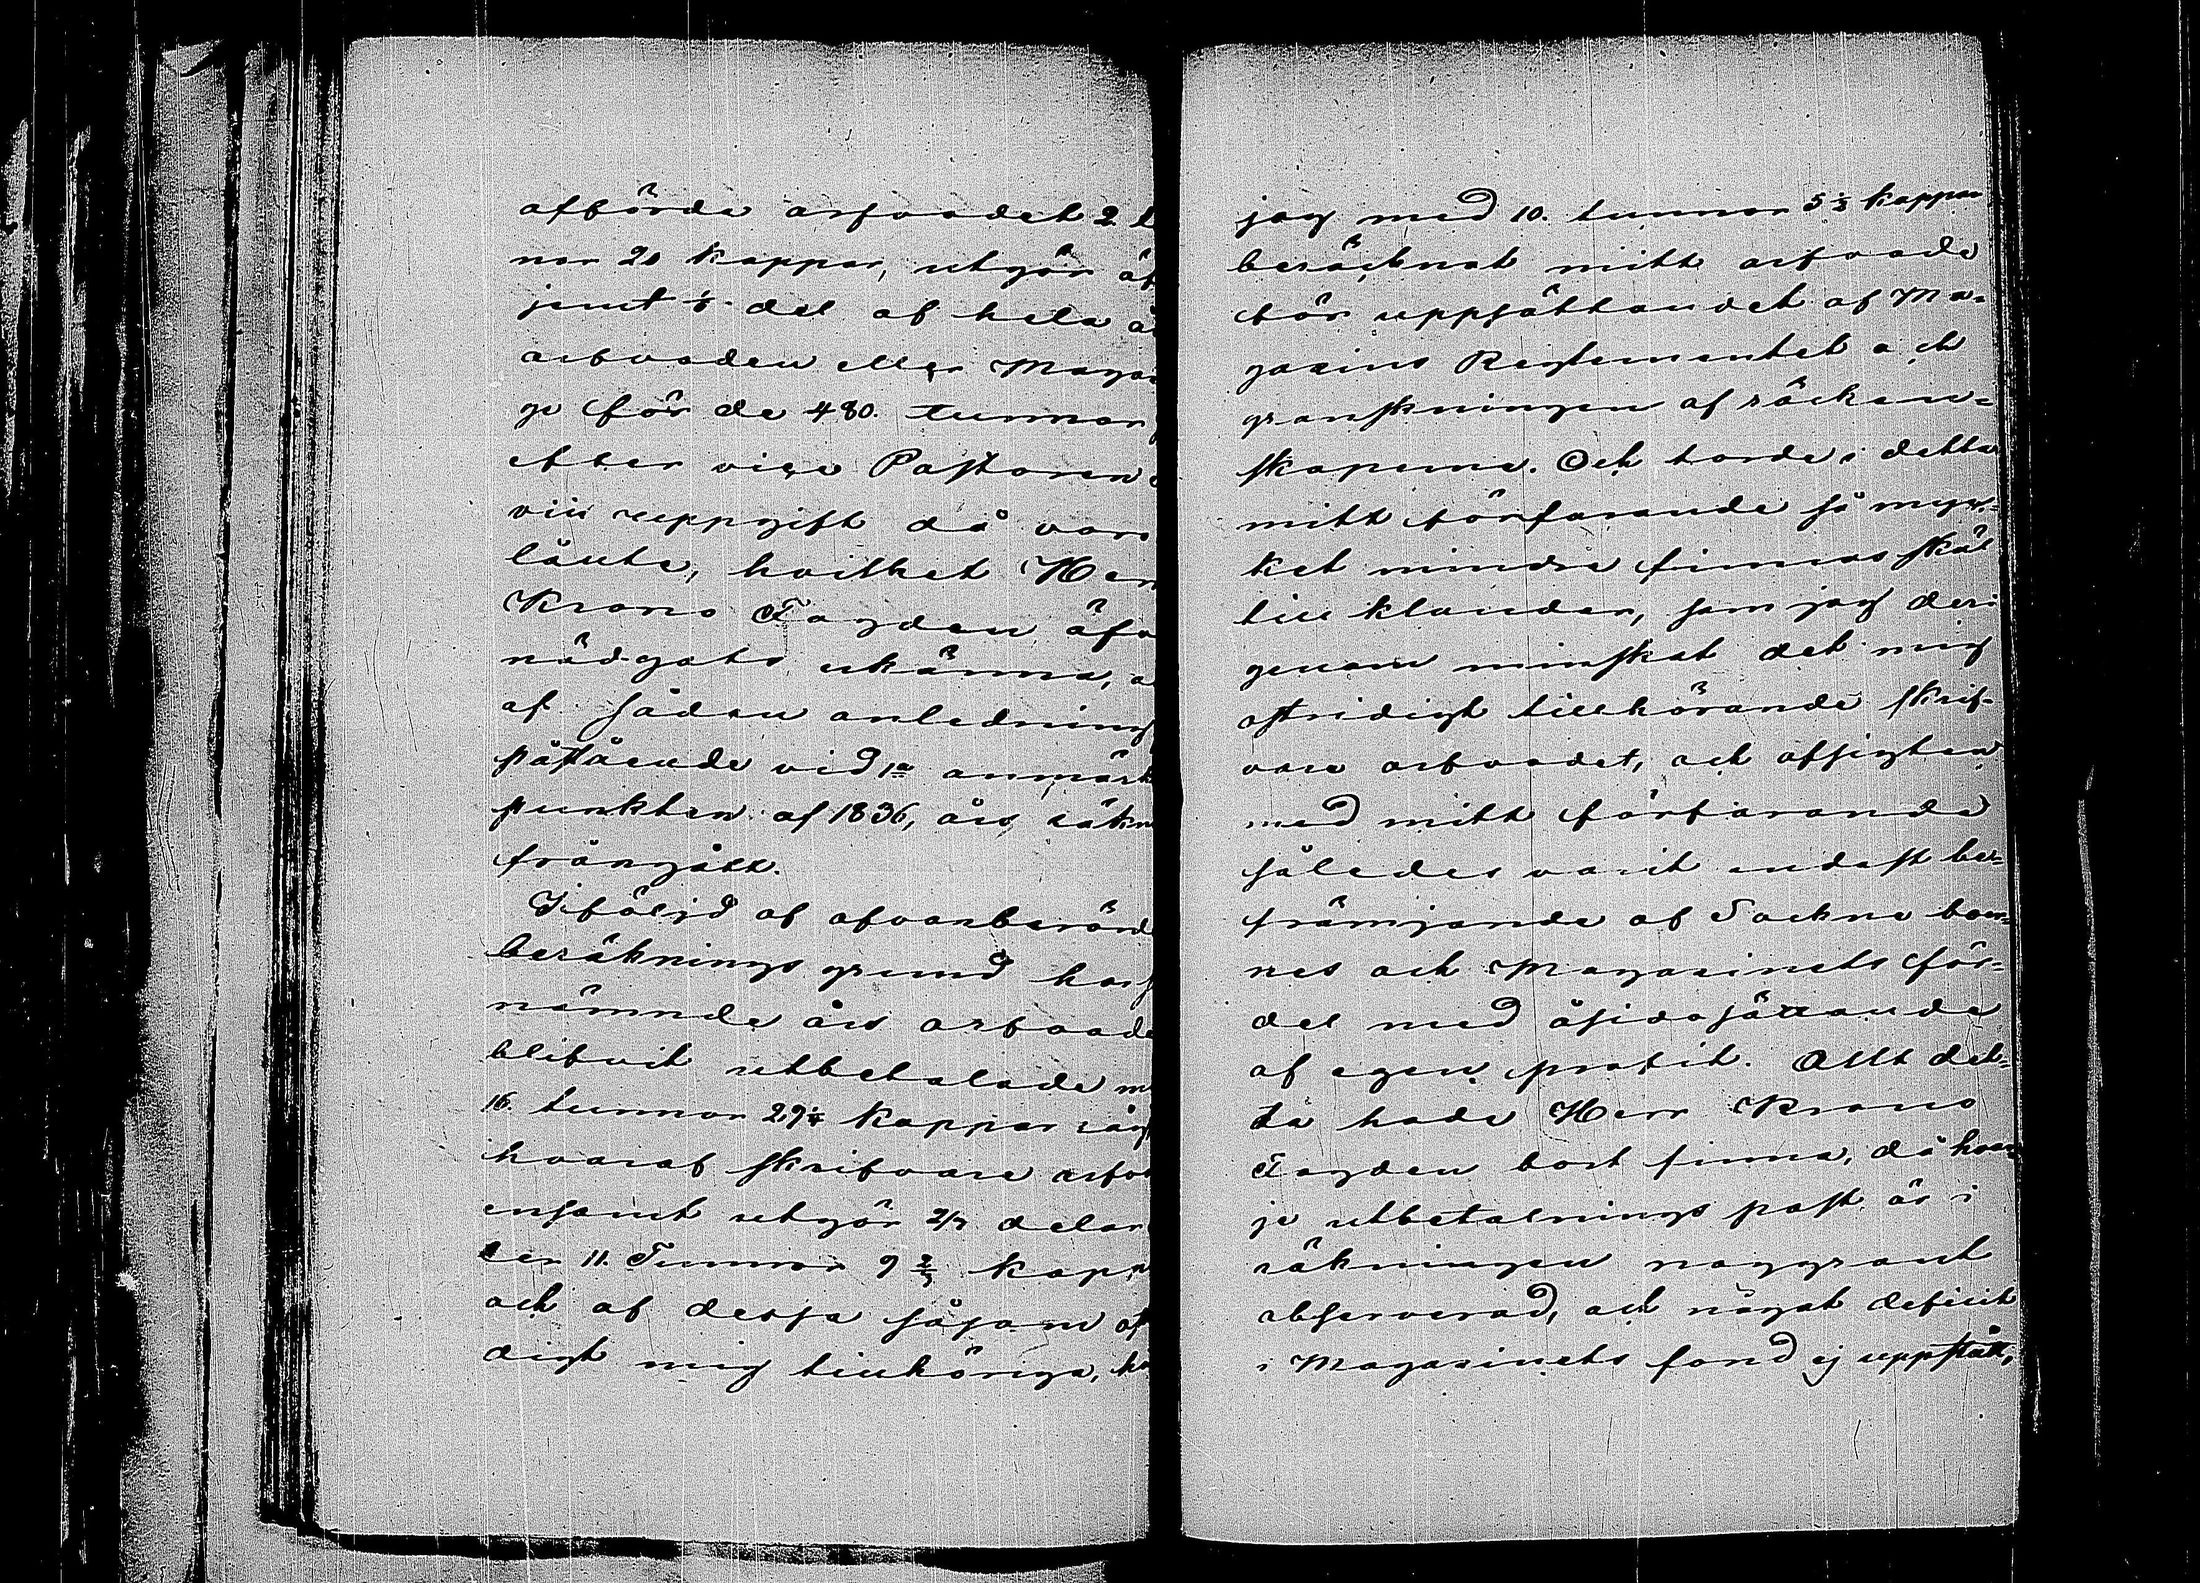 afförde arfvodet 2 t
nor 20 kappar, utgör äf
jemt 1/8 del af hela å
arfvoden eller Maga
ge för de 480. tunnor
efter vice Pastoren
vii uppgift då voro
lånte, hvilket Her
Krono Fogden äfv
nödgats erkänna, a
af sådan anledning
påstående vid 1a anmärk
punkten af 1836, års räkn
frångått.
Iföljd af ofvanberörd
beräknings grund haf
nämnde års arfvode
blifvit utbetalade m
16. tunnor 29 1/2 kappar råg
hvaraf skrifvare arfvo
ensamt utgör 2/3 delar
ler 11. Tunnor 9 2/3 kapp
och af dessa såsom ost
digt mig tillhöriga, ha
jag med 10. tunnor 5 1/3 kappar
beräcknat mitt arfvode
för uppsättandet af Ma-
gasins Reglementet och
granskningen af räcken-
skaperne. Och torde i detta
mitt förfarande så myc-
ket mindre finnas skäl
till klander, som jag deri
genom minskat det mig
ostridigt tillhörande skrif-
vare arfvodet, och afsigten
med mitt förfarande
således varit endast be-
främjande af Sockne boer-
nes och Magasinets för-
del med åsidosättande
af egen profit. Allt det-
ta hade Herr Krono
Fogden bort finna, då hvar-
je utbetalnings post är i
räkningen noggrant
observerad, och något deficit
i Magasinets fond ej uppstått,